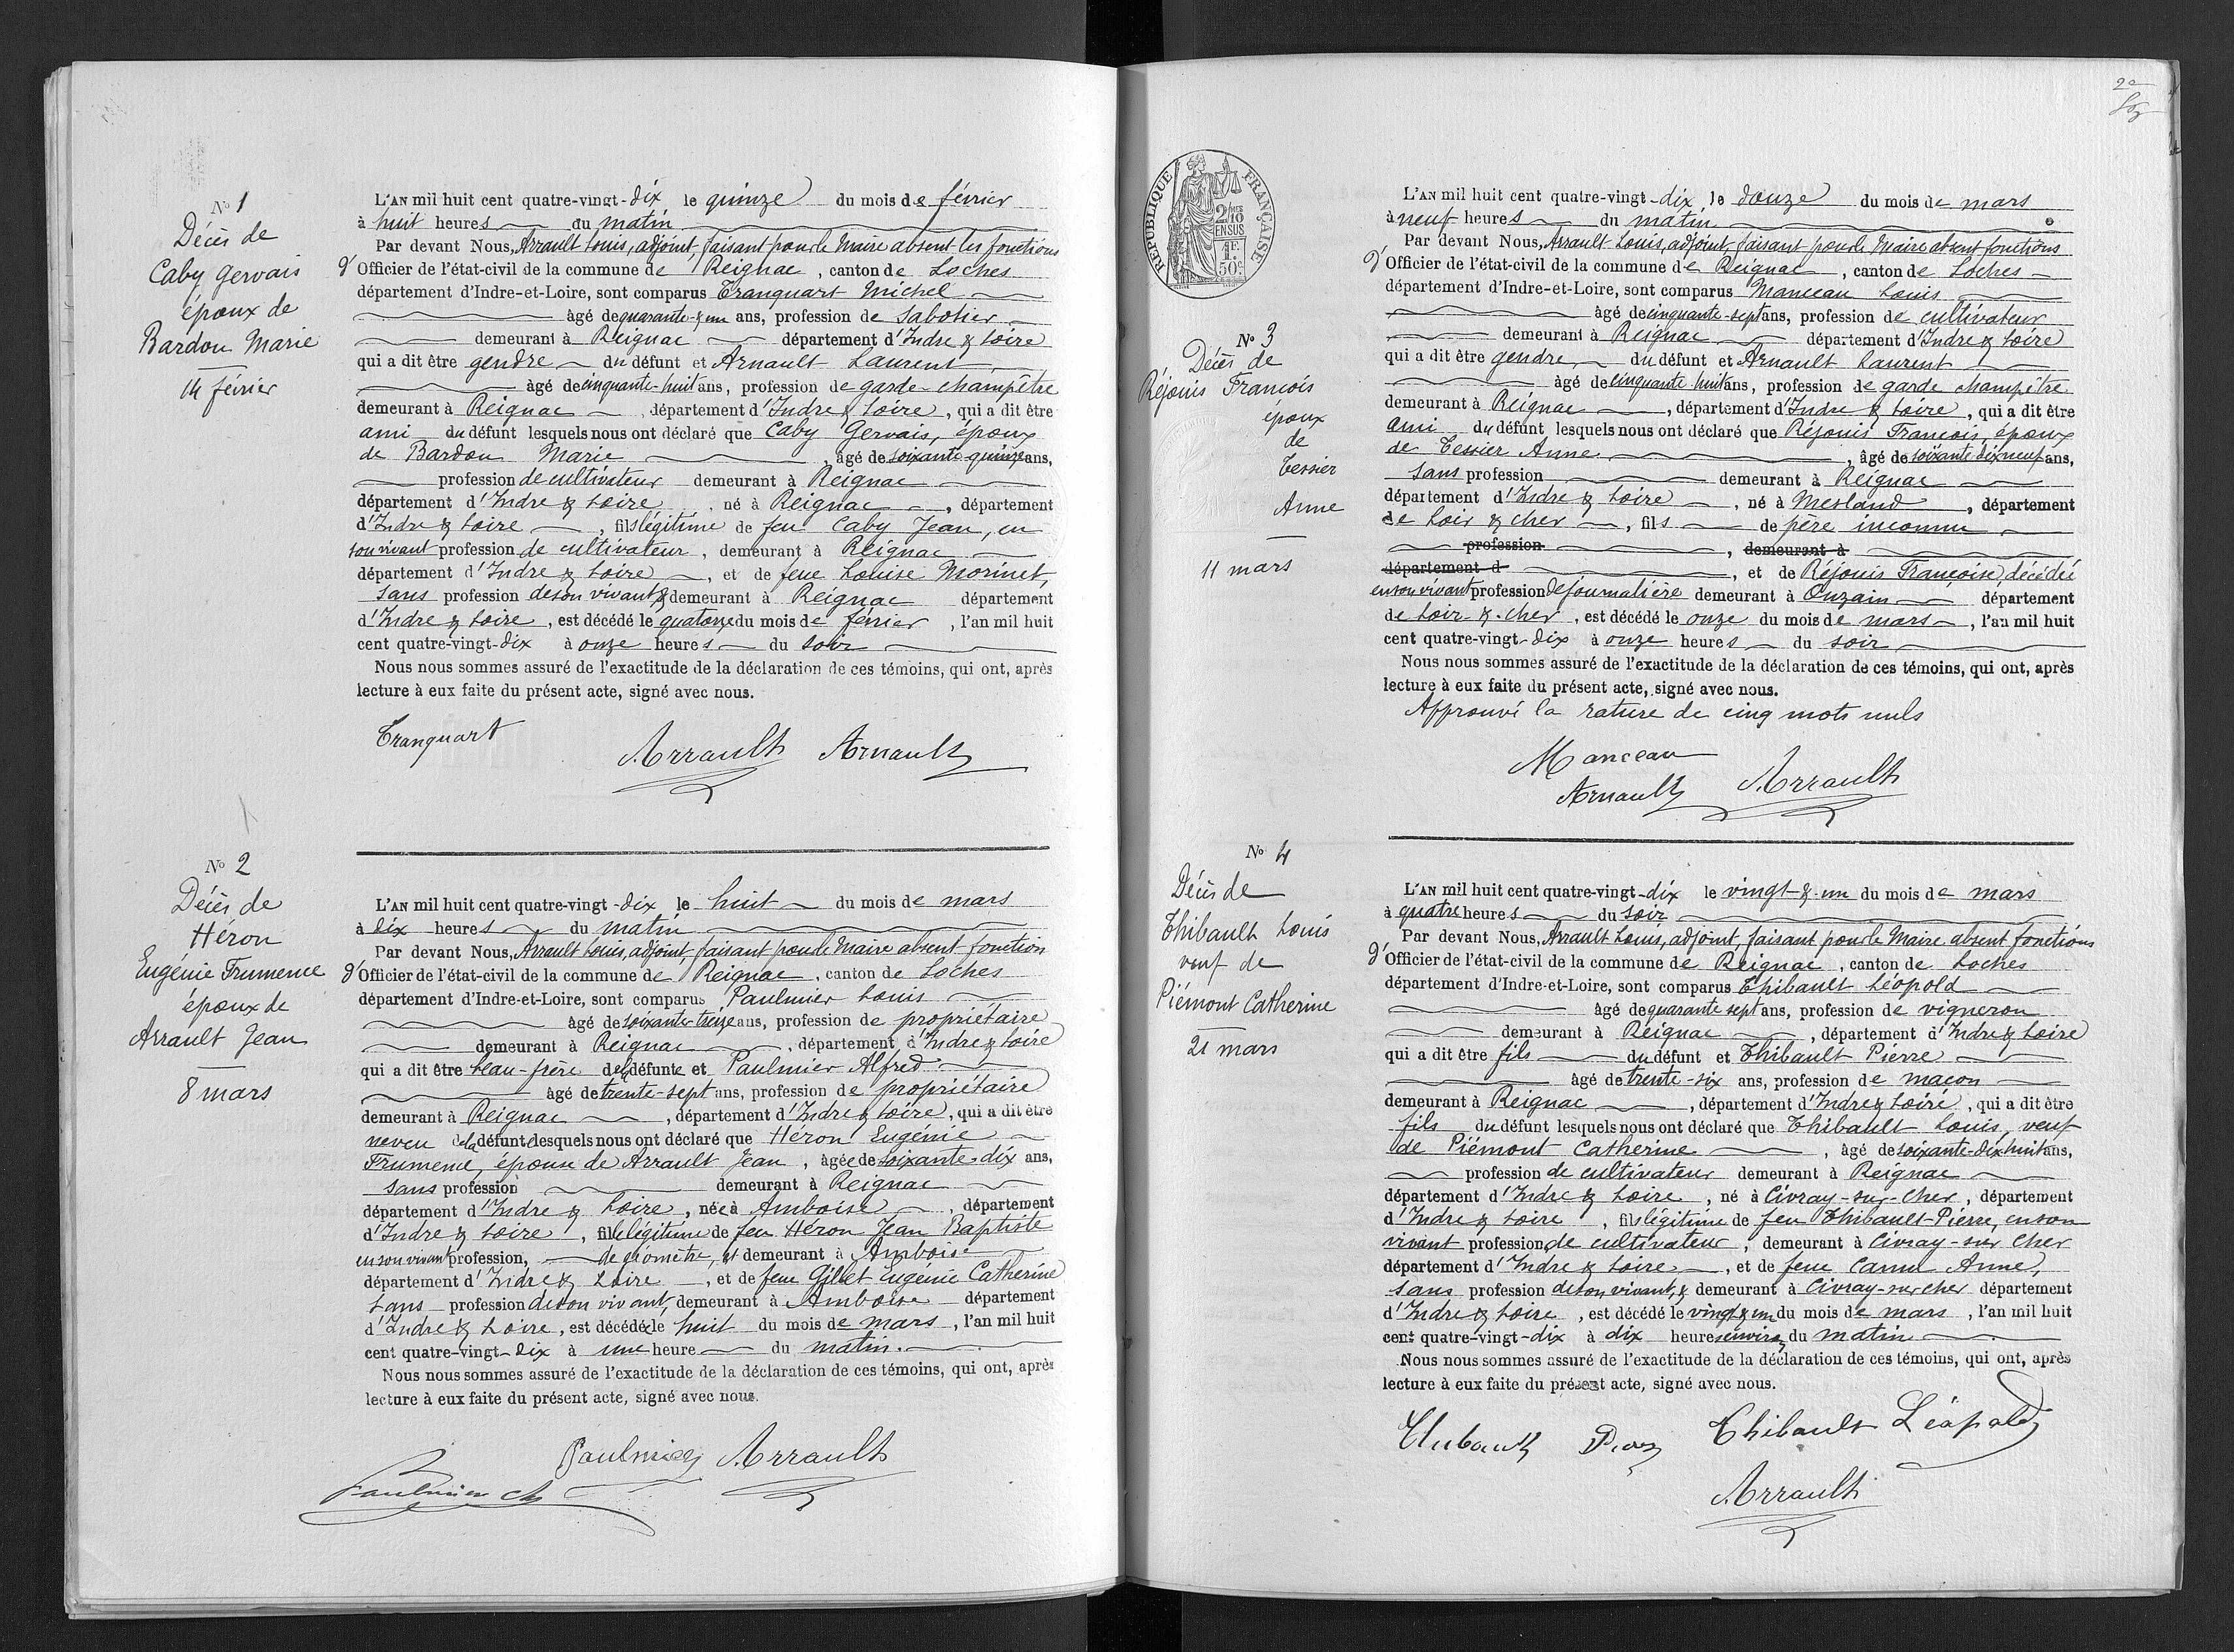 No 1
Décès de
Caby Gervais
époux de
Bardou Marie
14 février
L'AN mil huit cent quatre-vingt-dix le quinze du mois de février
à huit heures du matin
Par devant Nous, Arrault Louis, adjoint, faisant pour le Maire absent les fonctions
d'Officier de l'état-civil de la commune de Reignac, canton de Loches
département d'Indre-et-Loire, sont comparus Tranquart Michel
âgé de quarante-&un ans, profession de sabotier
demeurant à Reignac département d'Indre & Loire
qui a dit être gendre du défunt et Arnault Laurent
âgé de cinquante-huit ans, profession de garde-champêtre
demeurant à Reignac, département d'Indre & Loire, qui a dit être
ami du défunt lesquels nous ont déclaré que Caby Gervais, époux
de Bardou Marie, âgé de soixante-quinze ans,
profession de cultivateur demeurant à Reignac
département d'Indre & Loire, né à Reignac, département
d'Indre & Loire, fils légitime de feu Caby Jean, en
son vivant profession de cultivateur, demeurant à Reignac
département d'Indre & Loire, et de feue Louise Morinet,
sans profession de son vivant & demeurant à Reignac département
d'Indre & Loire, est décédé le quatorze du mois de février, l'an mil huit
cent quatre-vingt-dix à onze heures du soir
Nous nous sommes assuré de l'exactitude de la déclaration de ces témoins, qui ont, après
lecture à eux faite du présent acte, signé avec nous.
Tranquart Arrault Arnault
No 2
Décès de
Héron
Eugénie Frumence
époux de
Arrault Jean
8 mars
L'AN mil huit cent quatre-vingt-dix le huit du mois de mars
à dix heures du matin
Par devant Nous, Arrault Louis, adjoint, faisant pour le Maire absent fonction
d'Officier de l'état-civil de la commune de Reignac, canton de Loches
département d'Indre-et-Loire, sont comparus Paulmier Louis
âgé de soixante-treize ans, profession de propriétaire
demeurant à Reignac, département d'Indre & Loire
qui a dit être beau-frère de la défunte et Paulmier Alfred
âgé de trente-sept ans, profession de propriétaire
demeurant à Reignac, département d'Indre & Loire, qui a dit être
neveu de la défunte lesquels nous ont déclaré que Héron Eugénie
Frumence, épouse de Arrault Jean, âgée de soixante-dix ans,
sans profession demeurant à Reignac
département d'Indre & Loire, née à Amboise, département
d'Indre & Loire, fille légitime de feu Héron Jean Baptiste
en son vivant profession, de géomètre, et demeurant à Amboise
département d'Indre & Loire, et de feue Gillet Eugénie Catherine
sans profession de son vivant, demeurant à Amboise département
d'Indre & Loire, est décédée le huit du mois de mars, l'an mil huit
cent quatre-vingt-dix à une heure du matin.
Nous nous sommes assuré de l'exactitude de la déclaration de ces témoins, qui ont, après
lecture à eux faite du présent acte, signé avec nous.
Paulmier Arrault
Paulmier
2e
RÉPUBLIQUE FRANÇAISE
2/10 EN SUS
1F. 50c
No 3
Décès de
Réjouis Francois
époux
de
Tessier
Anne
11 mars
L'AN mil huit cent quatre-vingt-dix, le douze du mois de mars
à neuf heures du matin
Par devant Nous, Arrault Louis, adjoint, faisant pour le Maire absent fonctions
d'Officier de l'état-civil de la commune de Reignac, canton de Loches
département d'Indre-et-Loire, sont comparus Manceau Louis
âgé de cinquante-sept ans, profession de cultivateur
demeurant à Reignac département d'Indre & Loire
qui a dit être gendre du défunt et Arnault Laurent
âgé de cinquante-huit ans, profession de garde champêtre
demeurant à Reignac, département d'Indre & Loire, qui a dit être
ami du défunt lesquels nous ont déclaré que Réjouis Francois, époux
de Tessier Anne, âgé de soixante dix neuf ans,
sans profession demeurant à Reignac
département d'Indre & Loire, né à Mesland, département
de Loir & Cher, fils de père inconnu
profession, demeurant à
département d, et de Réjouis Francoise, décédée
en son vivant profession de journalière demeurant à Onzain département
de Loir-&-Cher, est décédé le onze du mois de mars, l'an mil huit
cent quatre-vingt-dix à onze heures du soir
Nous nous sommes assuré de l'exactitude de la déclaration de ces témoins, qui ont, après
lecture à eux faite du présent acte, signé avec nous.
Approuvé la rature de cinq mots nuls
Manceau
Arnault Arrault
No 4
Décès de
Thibault Louis
veuf de
Piémont Catherine
21 mars
L'AN mil huit cent quatre-vingt-dix le vingt-&-un du mois de mars
à quatre heures du soir
Par devant Nous, Arrault Louis, adjoint, faisant pour le Maire absent fonctions
d'Officier de l'état-civil de la commune de Reignac, canton de Loches
département d'Indre-et-Loire, sont comparus Thibault Léopold
âgé de quarante sept ans, profession de vigneron
demeurant à Reignac, département d'Indre & Loire
qui a dit être fils du défunt et Thibault Pierre
âgé de trente-six ans, profession de maçon
demeurant à Reignac, département d'Indre & Loire, qui a dit être
fils du défunt lesquels nous ont déclaré que Thibault Louis, veuf
de Piémont Catherine, âgé de soixante-dix huit ans,
profession de cultivateur demeurant à Reignac
département d'Indre & Loire, né à Civray-sur-Cher, département
d'Indre & Loire, fils légitime de feu Thibault-Pierre, en son
vivant profession de cultivateur, demeurant à Civray-sur Cher
département d'Indre & Loire, et de feue Carru Anne,
sans profession de son vivant, & demeurant à Civray-sur Cher département
d'Indre & Loire, est décédé le vingt & un du mois de mars, l'an mil huit
cent quatre-vingt-dix à dix heures environ du matin
Nous nous sommes assuré de l'exactitude de la déclaration de ces témoins, qui ont, après
lecture à eux faite du présent acte, signé avec nous.
Thibault Pierre Thibault Léopold
Arrault